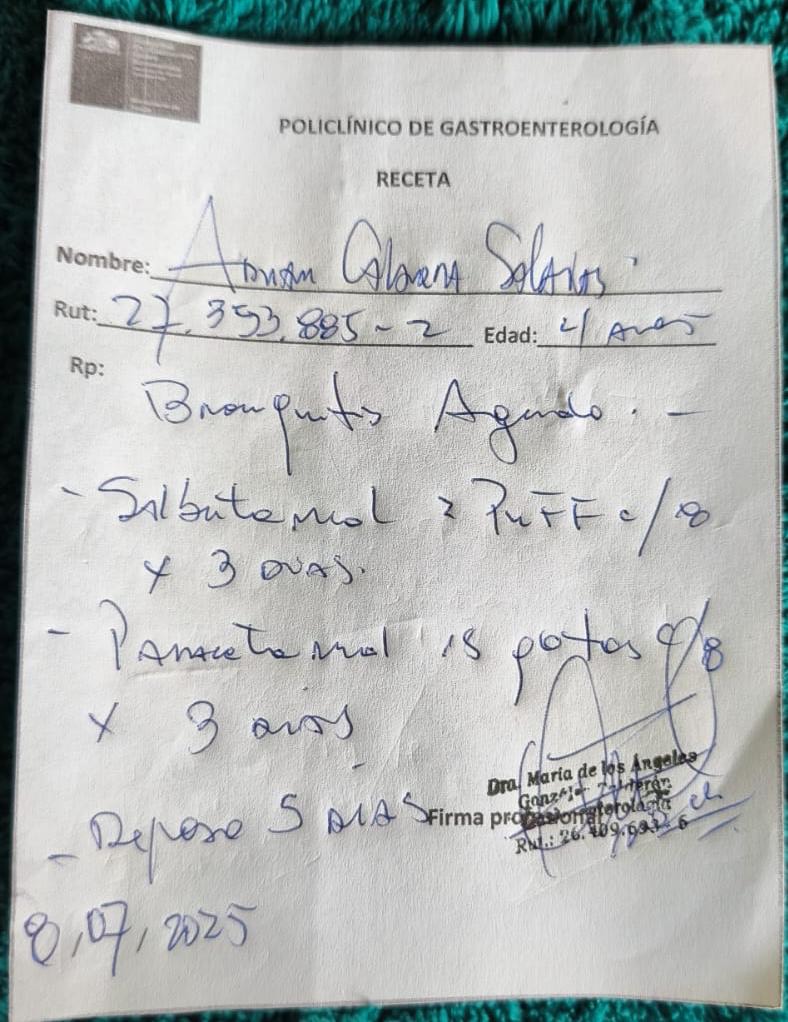 POLICLÍNICO DE GASTROENTEROLOGÍA
RECETA
Nombre: Adrian
Rut: 27.353.885-2 Edad: 4 años
Rp:
Bronquitis Aguda. -
- Salbutamol 2 PuFF c/8
x 3 DIAS.
- Paracetamol 15 gotas c/8
x 3 dias
- Reposo 5 DIAS
Dra. María de los Ángeles
Firma profesional
Rut.: 26.
8,07,2025